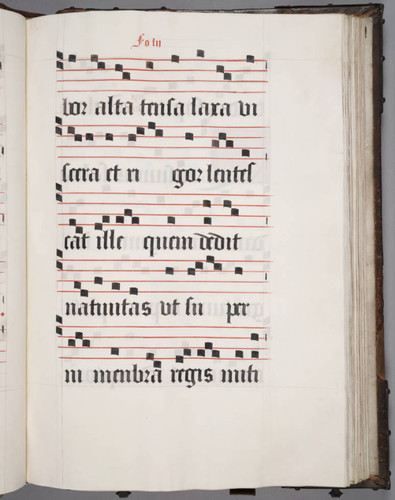 Fo lu
bor alta tensa laxa vi
scera et ri gor lentes
cat ille quem dedit
nativitas vt su per
ni menbra regis miti